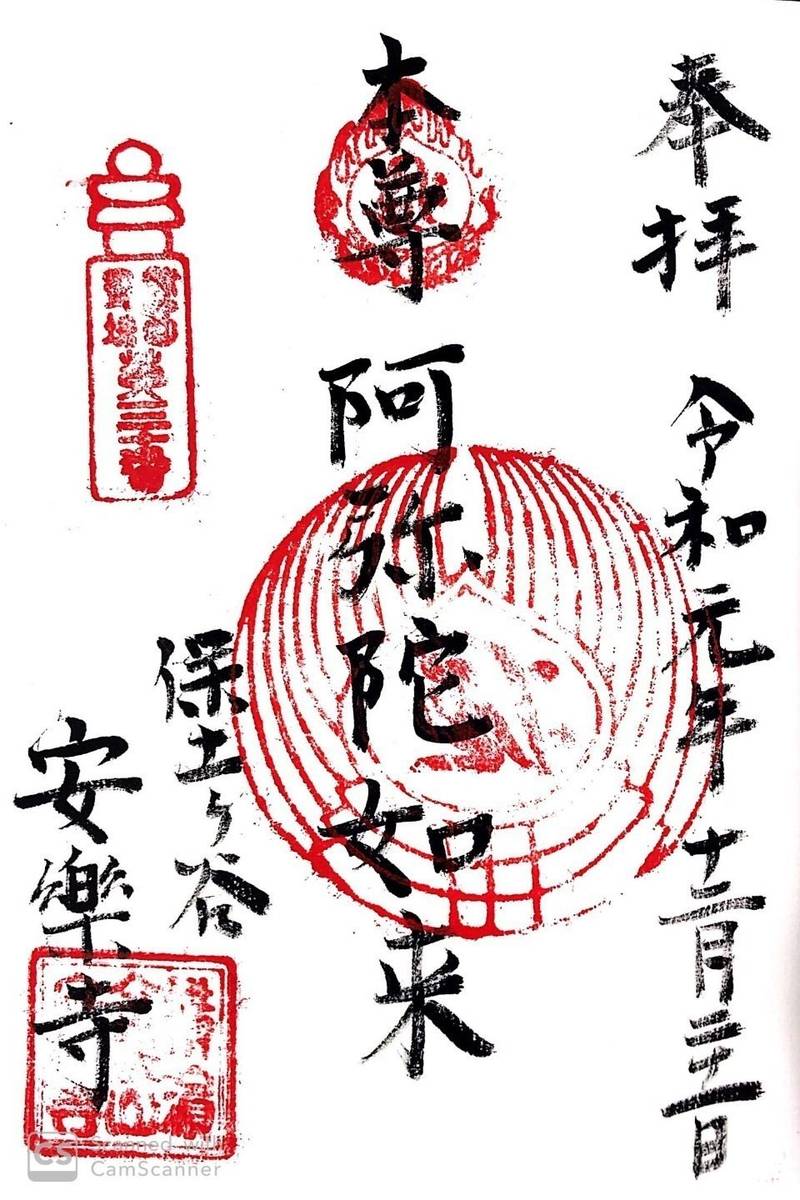 奉拝 令和元年十二月二十一日
本尊 阿弥陀如来
保土ヶ谷
安樂寺